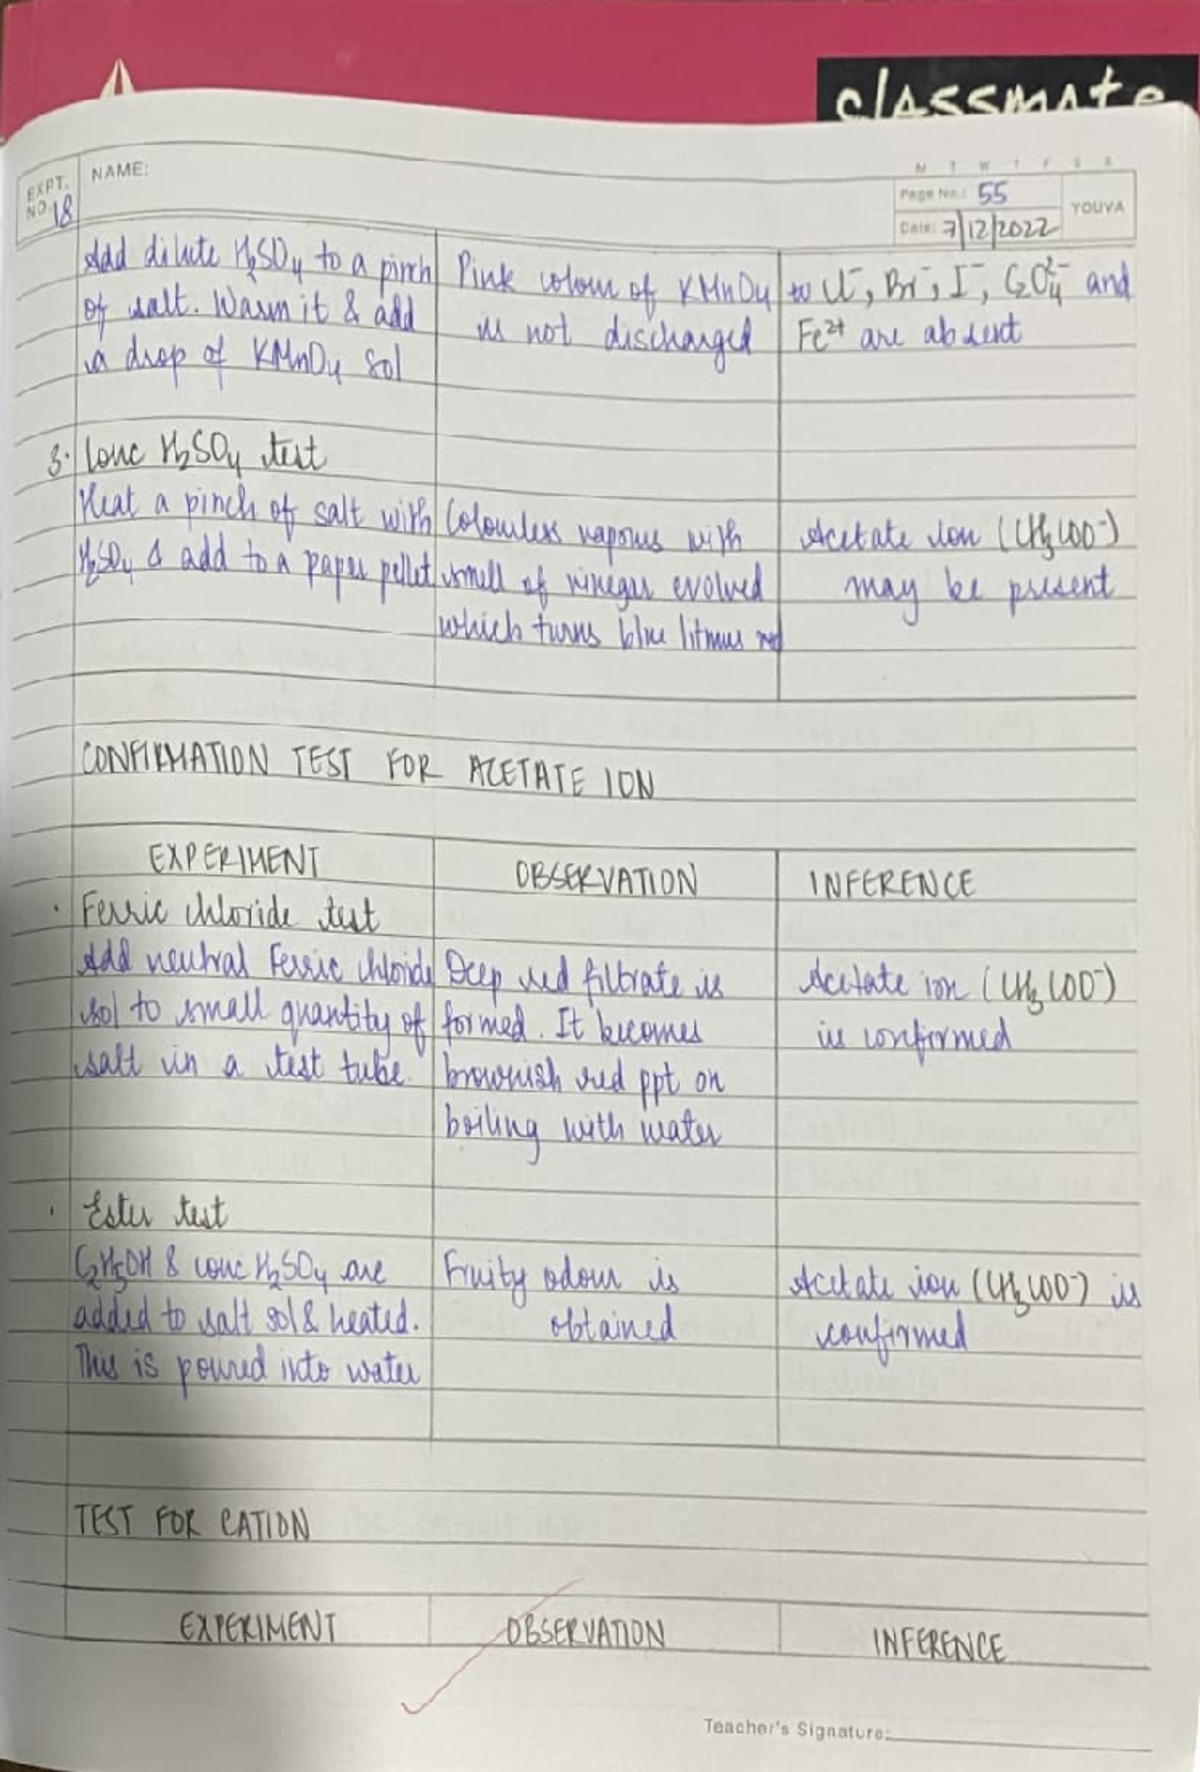 classmate
EXPT. NO. 18
NAME:
M T W T F S S
Page No.: 55
YOUVA
Date: 7/12/2022
Add dilute H₂SO₄ to a pinch
of salt. Warm it & add
a drop of KMnO₄ sol
Pink colour of KMnO₄
is not discharged
so Cl⁻, Br⁻, I⁻, C₂O₄²⁻ and
Fe²⁺ are absent
3. Conc H₂SO₄ test
Heat a pinch of salt with
H₂SO₄ & add to a paper pellet
Colourless vapours with
smell of vinegar evolved
which turns blue litmus red
Acetate ion (CH₃COO⁻)
may be present
CONFIRMATION TEST FOR ACETATE ION
EXPERIMENT
OBSERVATION
INFERENCE
· Ferric chloride test
Add neutral Ferric chloride
sol to small quantity of
salt in a test tube.
Deep red filtrate is
formed. It becomes
brownish red ppt on
boiling with water
Acetate ion (CH₃COO⁻)
is confirmed
· Ester test
C₂H₅OH & conc H₂SO₄ are
added to salt sol & heated.
This is poured into water
Fruity odour is
obtained
Acetate ion (CH₃COO⁻) is
confirmed
TEST FOR CATION
EXPERIMENT
OBSERVATION
INFERENCE
Teacher's Signature: